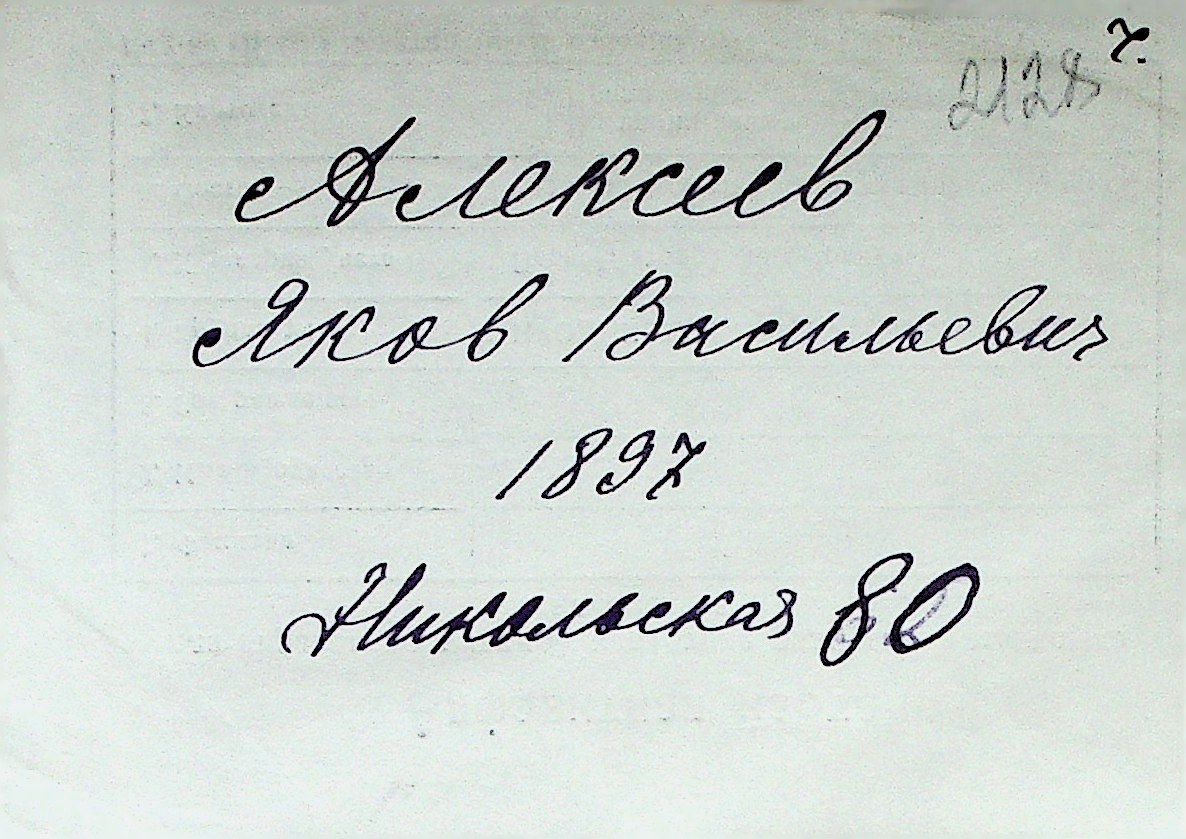 7.
2128
Алексеев
Яков Васильевич
1897
Никольская 80